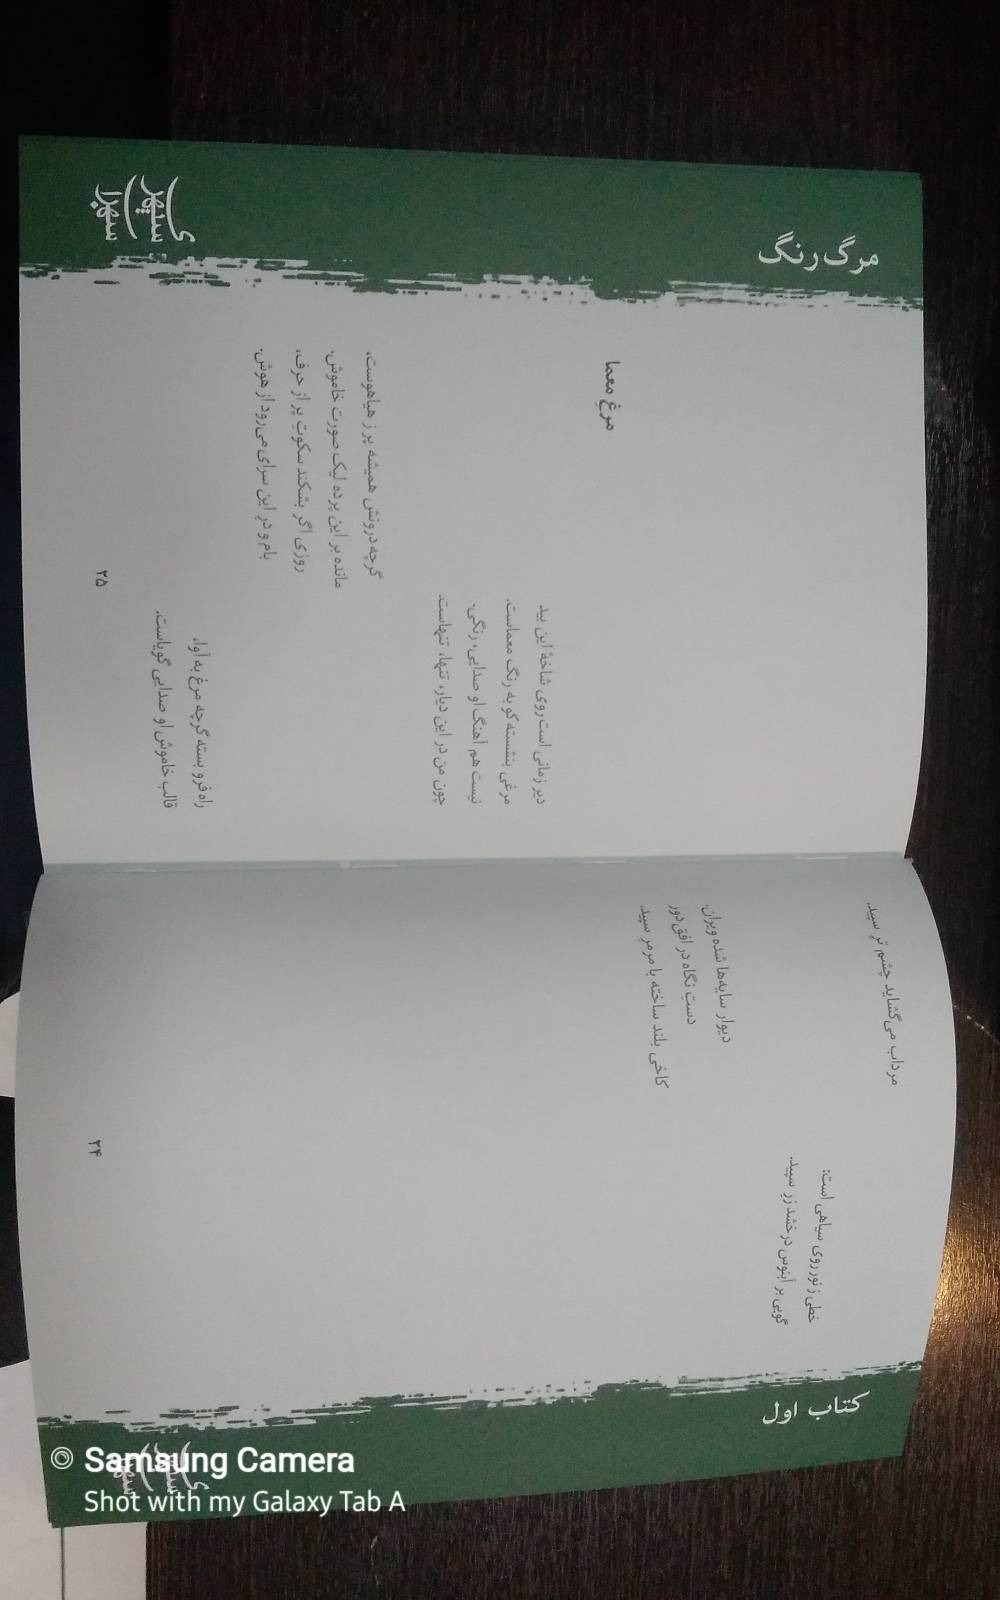 کتاب اول
مرداب می‌گشاید چشم تر سپید.
خطی ز نور روی سیاهی است:
گویی بر آبنوس درخشد زر سپید.
دیوار سایه‌ها شده ویران.
دست نگاه در افق دور
کاخی بلند ساخته با مرمر سپید.
۲۴
مرگ رنگ
سهراب
سپهری
مرغ معما
دیر زمانی است روی شاخهٔ این بید
مرغی بنشسته کو به رنگ معماست.
نیست هم آهنگ او صدایی، رنگی.
چون من در این دیار، تنها، تنهاست.
گرچه درونش همیشه پر ز هیاهوست،
مانده بر این پرده لیک صورت خاموش.
روزی اگر بشکند سکوت پر از حرف،
بام و در این سرای می‌رود از هوش.
راه فرو بسته گرچه مرغ به آوا،
قالب خاموش او صدایی گویاست.
۲۵
Samsung Camera
Shot with my Galaxy Tab A